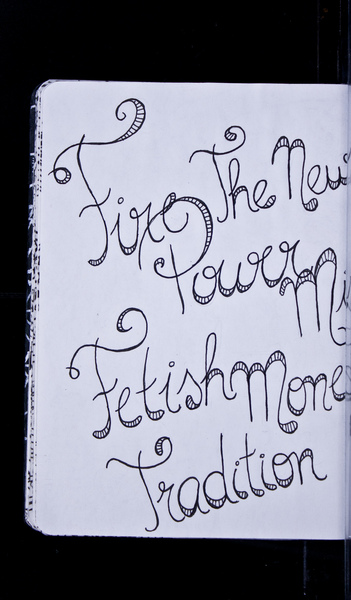 Fixe The New
Power Mi
Fetish Mone
Tradition